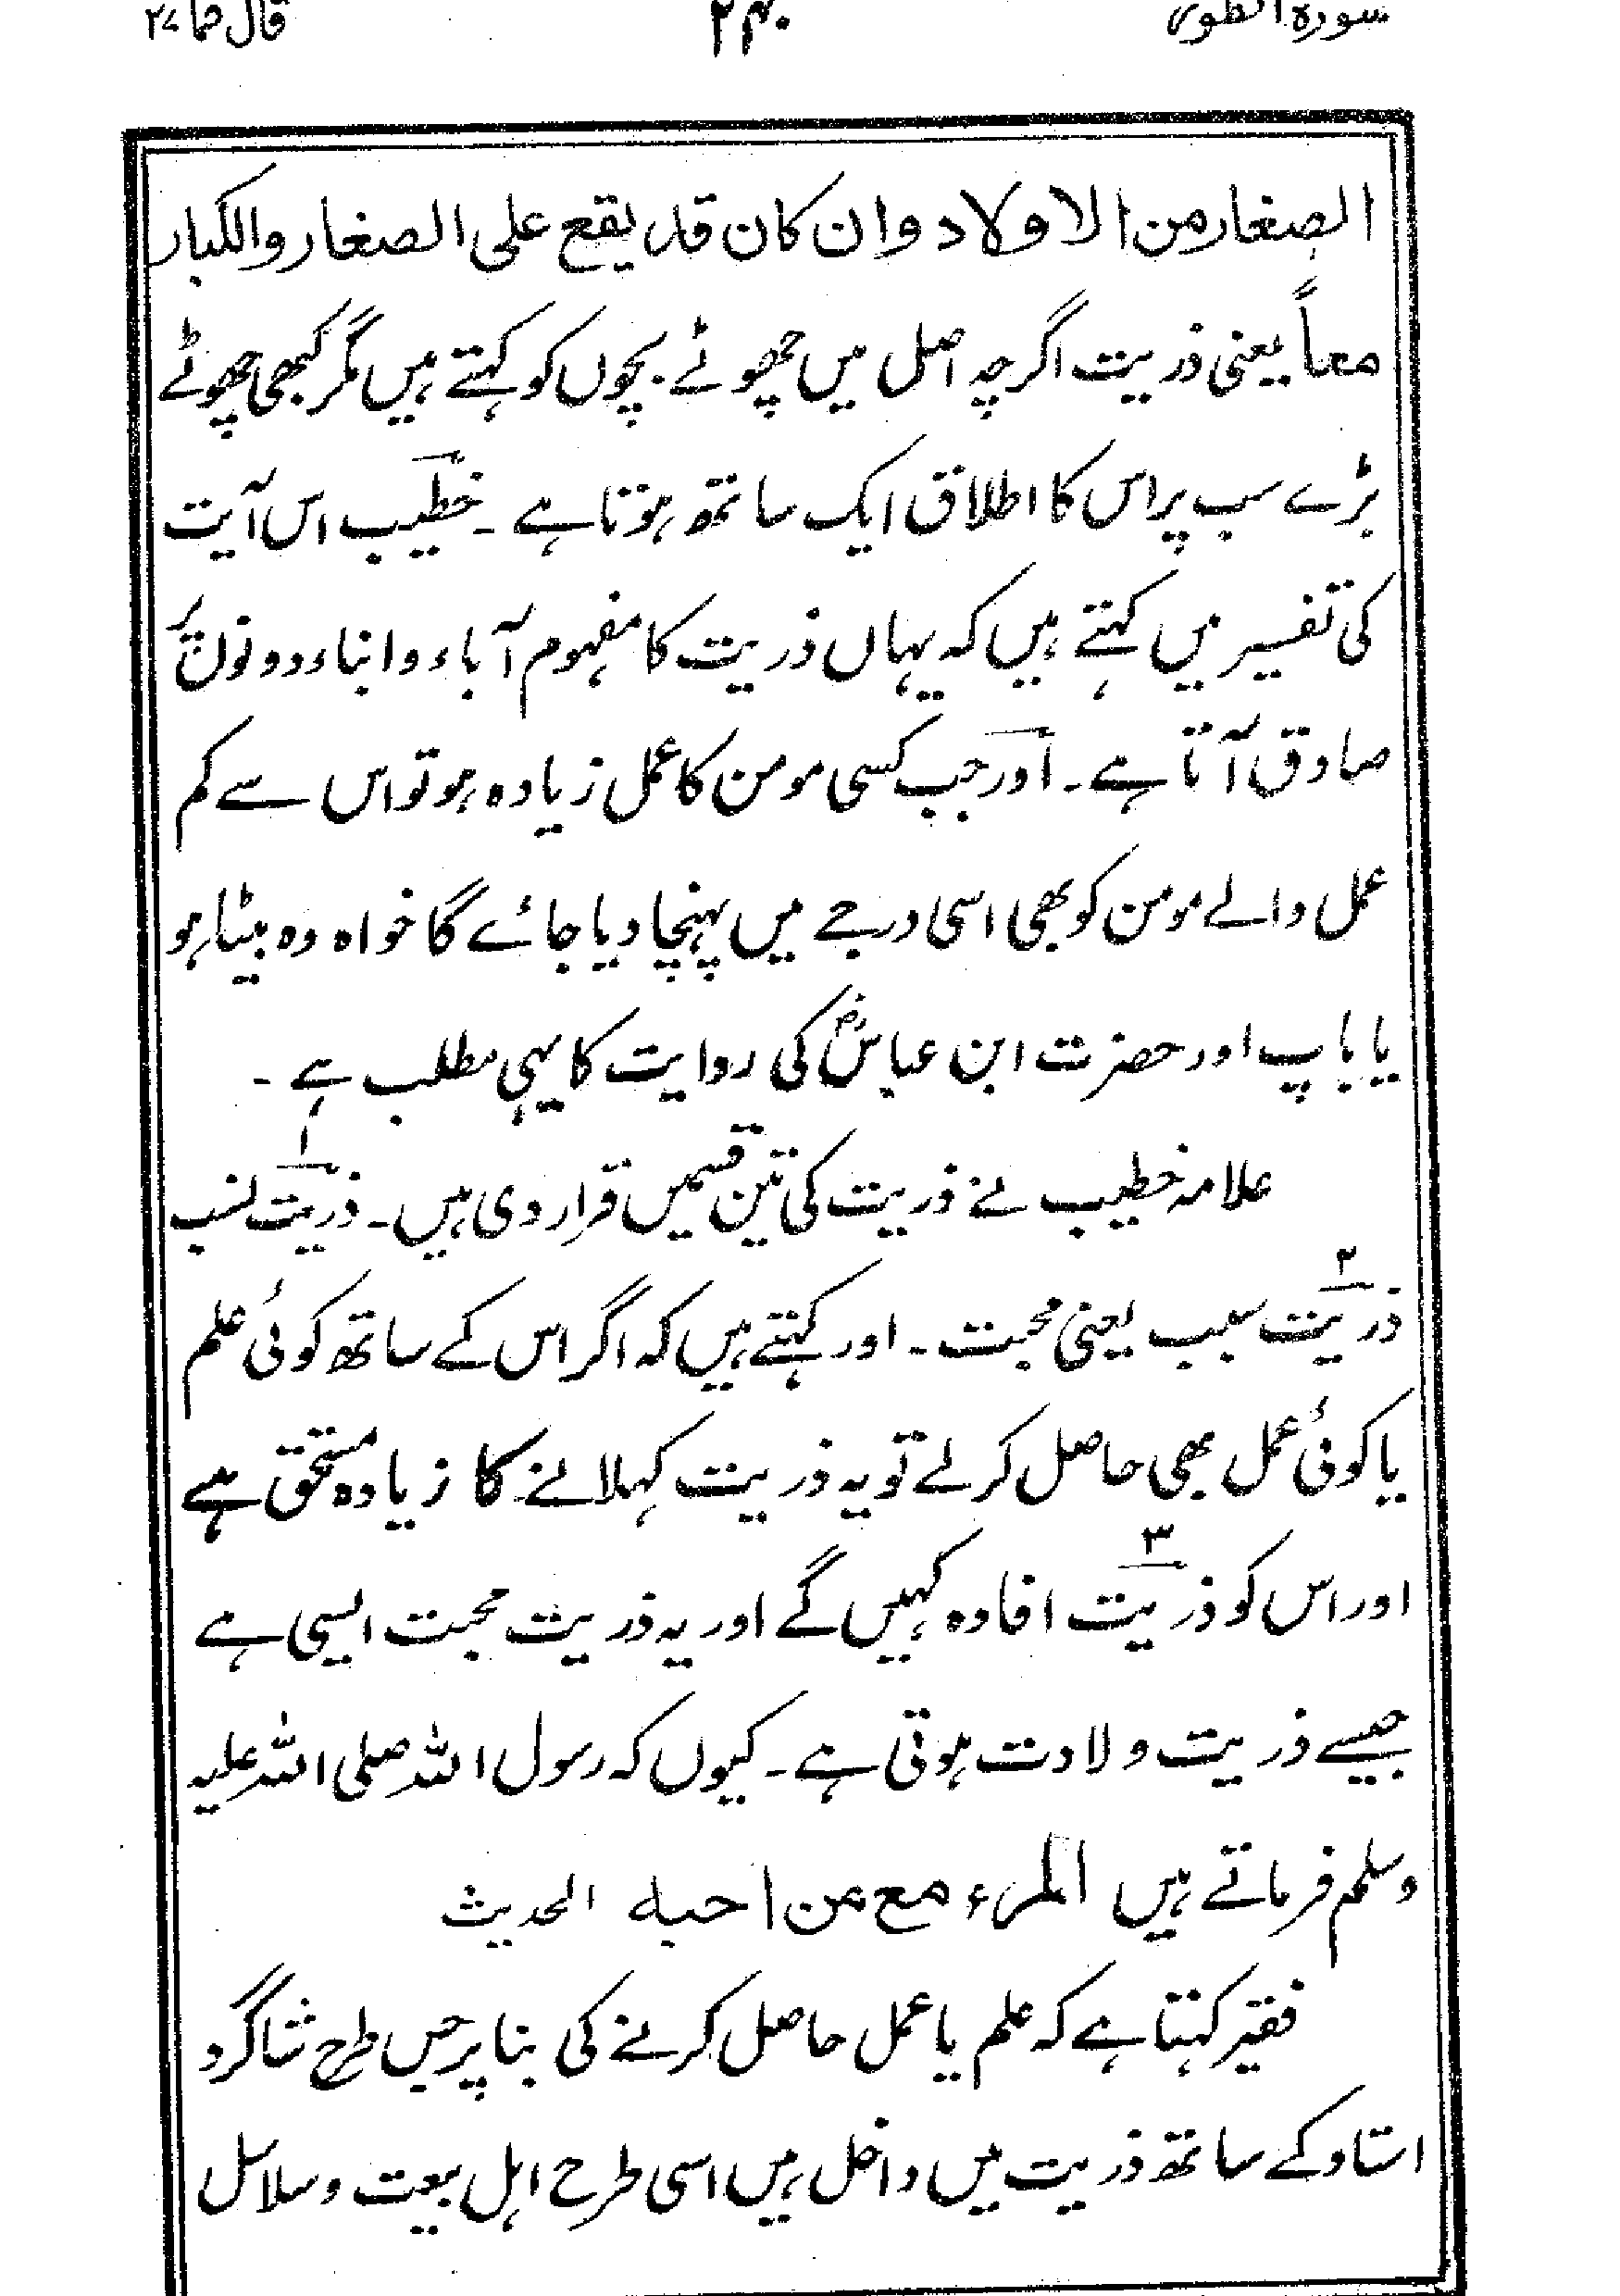 سورہ الطور ۲۴۰ قال فما ۲۷
الصغار من الاولاد وان کان قد یقع علی الصغار والکبار
معاً یعنی ذریت اگرچہ اصل میں چھوٹے بچوں کو کہتے ہیں مگر کبھی چھوٹے
بڑے سب پر اس کا اطلاق ایک ساتھ ہوتا ہے ۔ خطیب اس آیت
کی تفسیر میں کہتے ہیں کہ یہاں ذریت کا مفہوم آباء و ابناء دونوں پر
صادق آتا ہے ۔ اور جب کسی مومن کا عمل زیادہ ہو تو اس سے کم
عمل والے مومن کو بھی اسی درجے میں پہنچا دیا جائے گا خواہ وہ بیٹا ہو
یا باپ اور حضرت ابن عباسؓ کی روایت کا یہی مطلب ہے ۔
علامہ خطیب نے ذریت کی تین قسمیں قرار دی ہیں ۔ ۱ ذریت نسب
۲ ذریت سبب یعنی محبت ۔ اور کہتے ہیں کہ اگر اس کے ساتھ کوئی علم
یا کوئی عمل بھی حاصل کرلے تو یہ ذریت کہلانے کا زیادہ مستحق ہے
اور اس کو ۳ ذریت افادہ کہیں گے اور یہ ذریت محبت ایسی ہے
جیسے ذریت ولادت ہوتی ہے ۔ کیوں کہ رسول اللہ صلی اللہ علیہ
وسلم فرماتے ہیں المرء مع من احبہ الحدیث
فقیر کہتا ہے کہ علم یا عمل حاصل کرنے کی بنا پر جس طرح شاگرد
استاد کے ساتھ ذریت میں داخل ہیں اسی طرح اہل بیعت و سلاسل